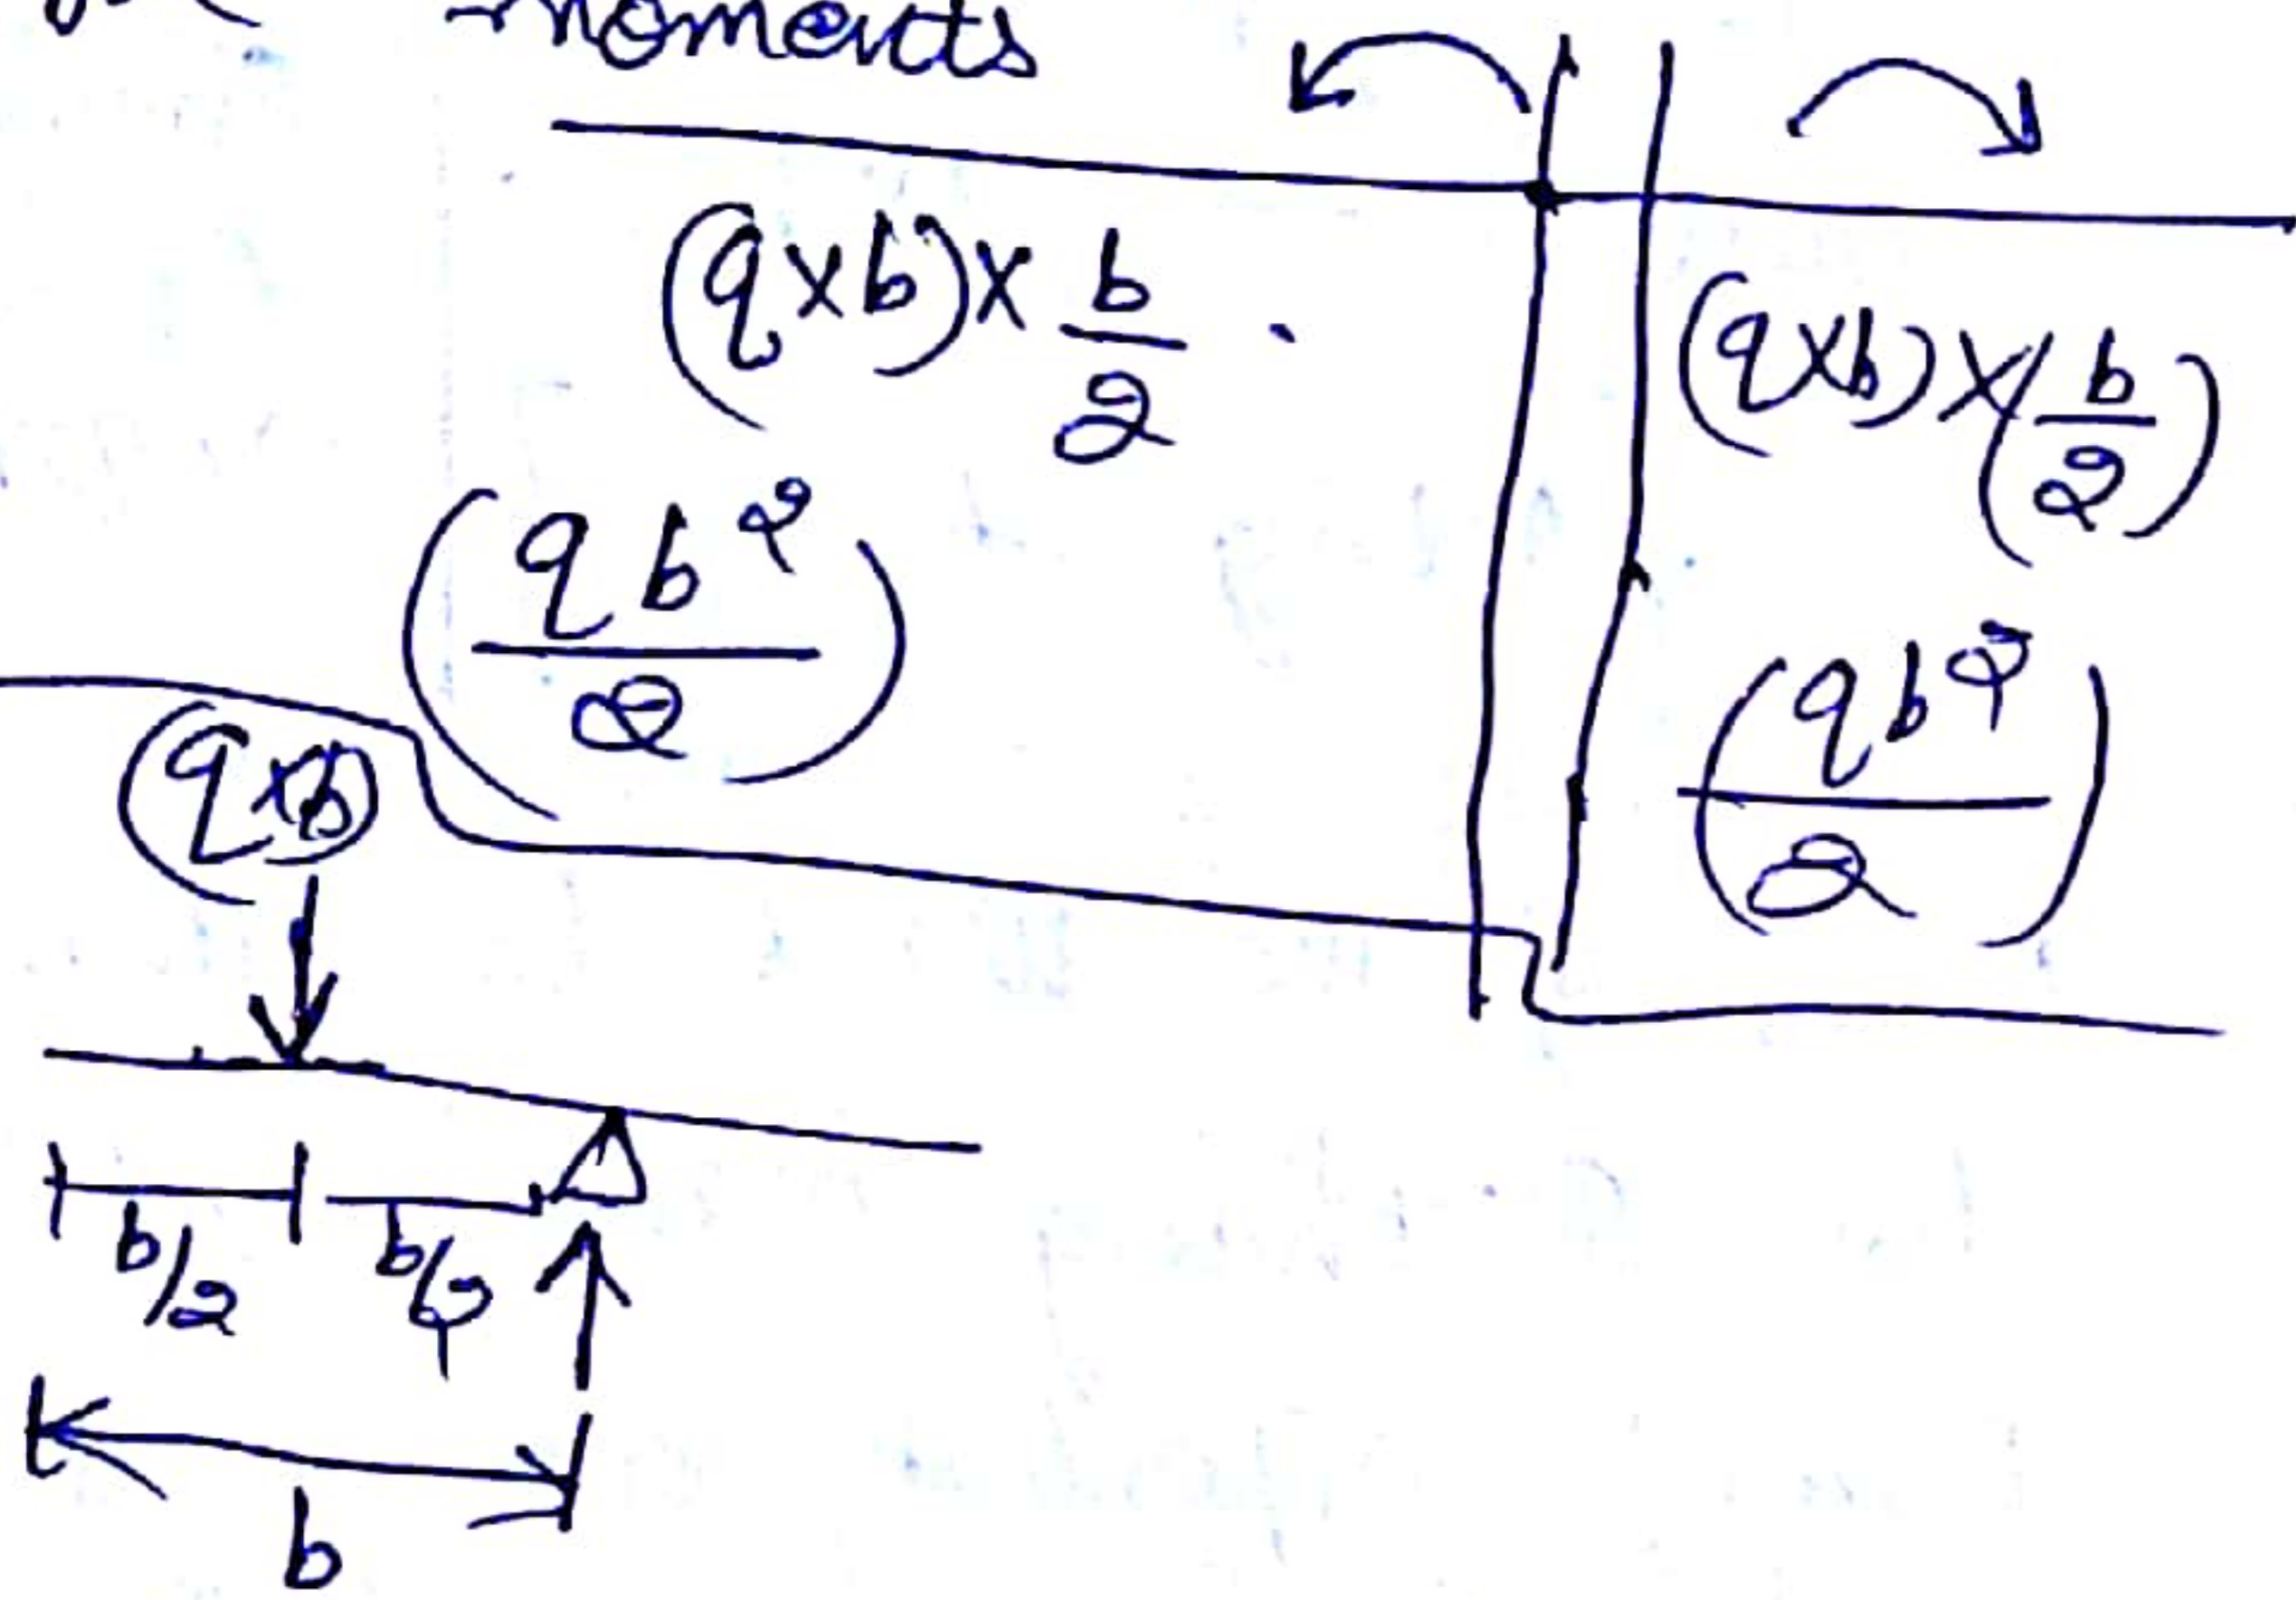 moments
(q×b)×b/2
(q×b)×(b/2)
(qb²/2)
(qb²/2)
(q×b)
b/2 b/2
b